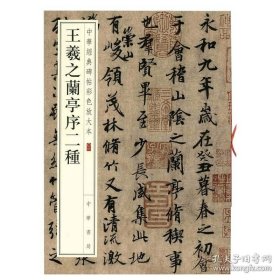 中華經典碑帖彩色放大本
王羲之蘭亭序二種
中華書局
永和九年歲在癸丑暮春之初
會稽山陰之蘭亭脩稧事
也群賢畢至少長咸集此
崇山
峻領茂林脩竹又有
孔夫子旧书网